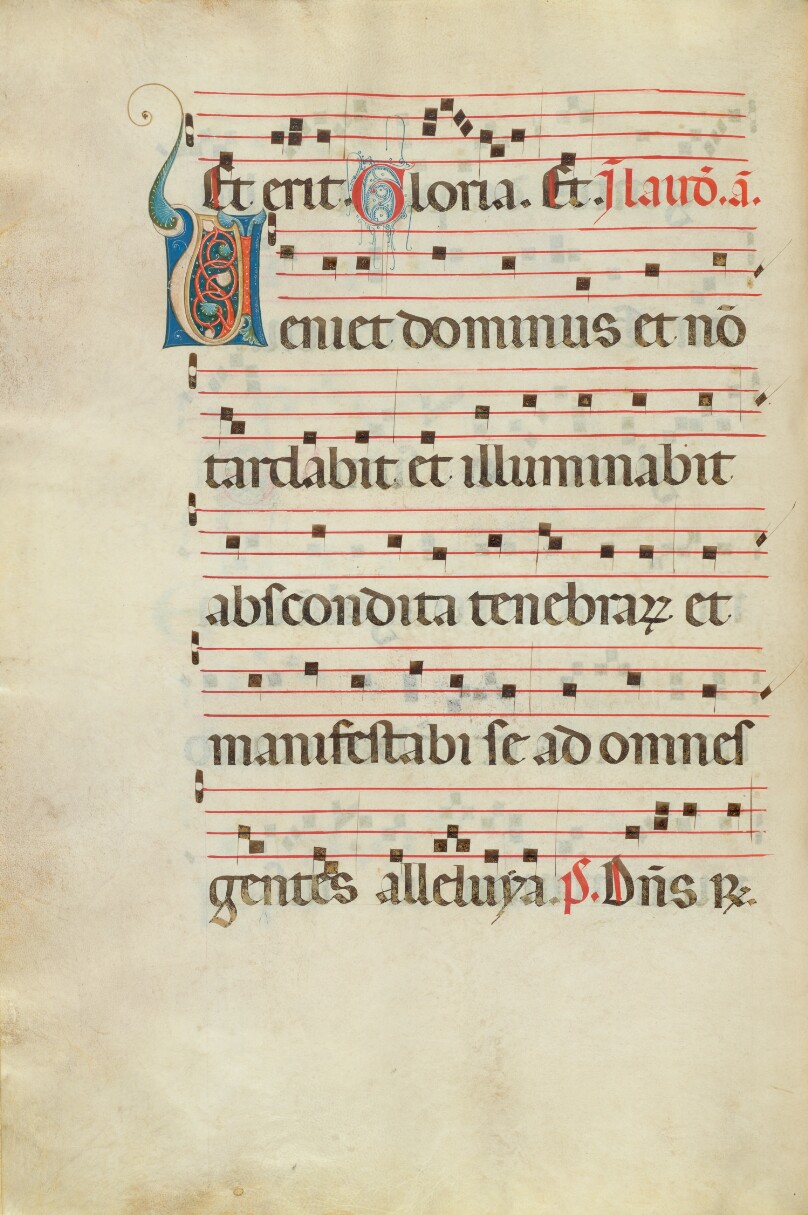 Et erit. Gloria. Et. J laud̄. ā.
Ueniet dominus et nō
tardabit et illuminabit
abſcondita tenebraꝝ et
manifeſtabi ſe ad omneſ
gentes alleluya. p̄. Dn̄s ℞.